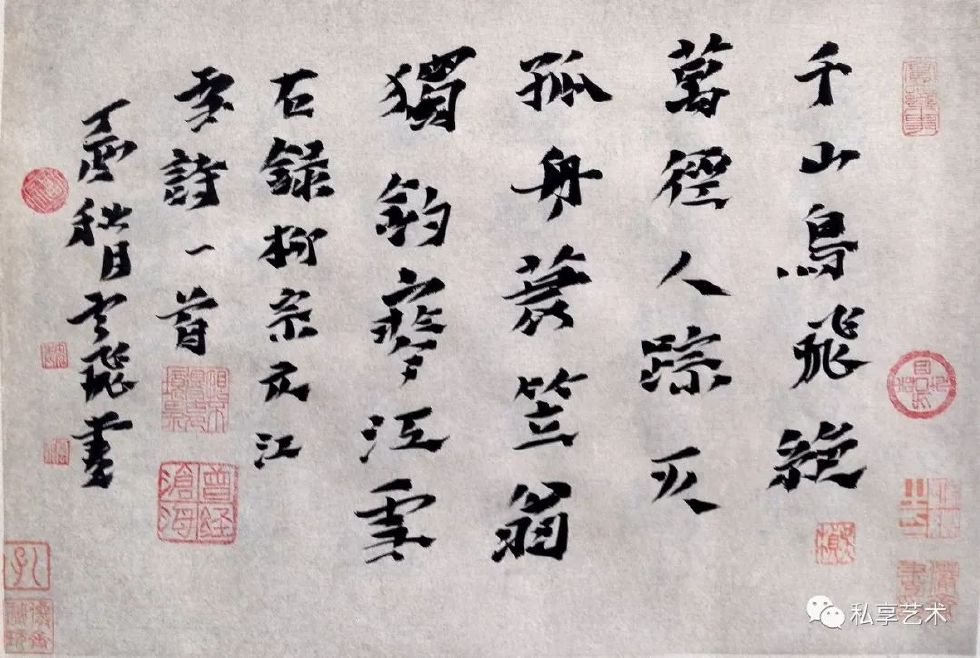 千山鳥飛絶
萬徑人踪灭
孤舟蓑笠翁
獨釣寒江雪
右錄柳宗元江
雪詩一首
丁酉秋日雲飛書
曾经滄海
孔
私享艺术